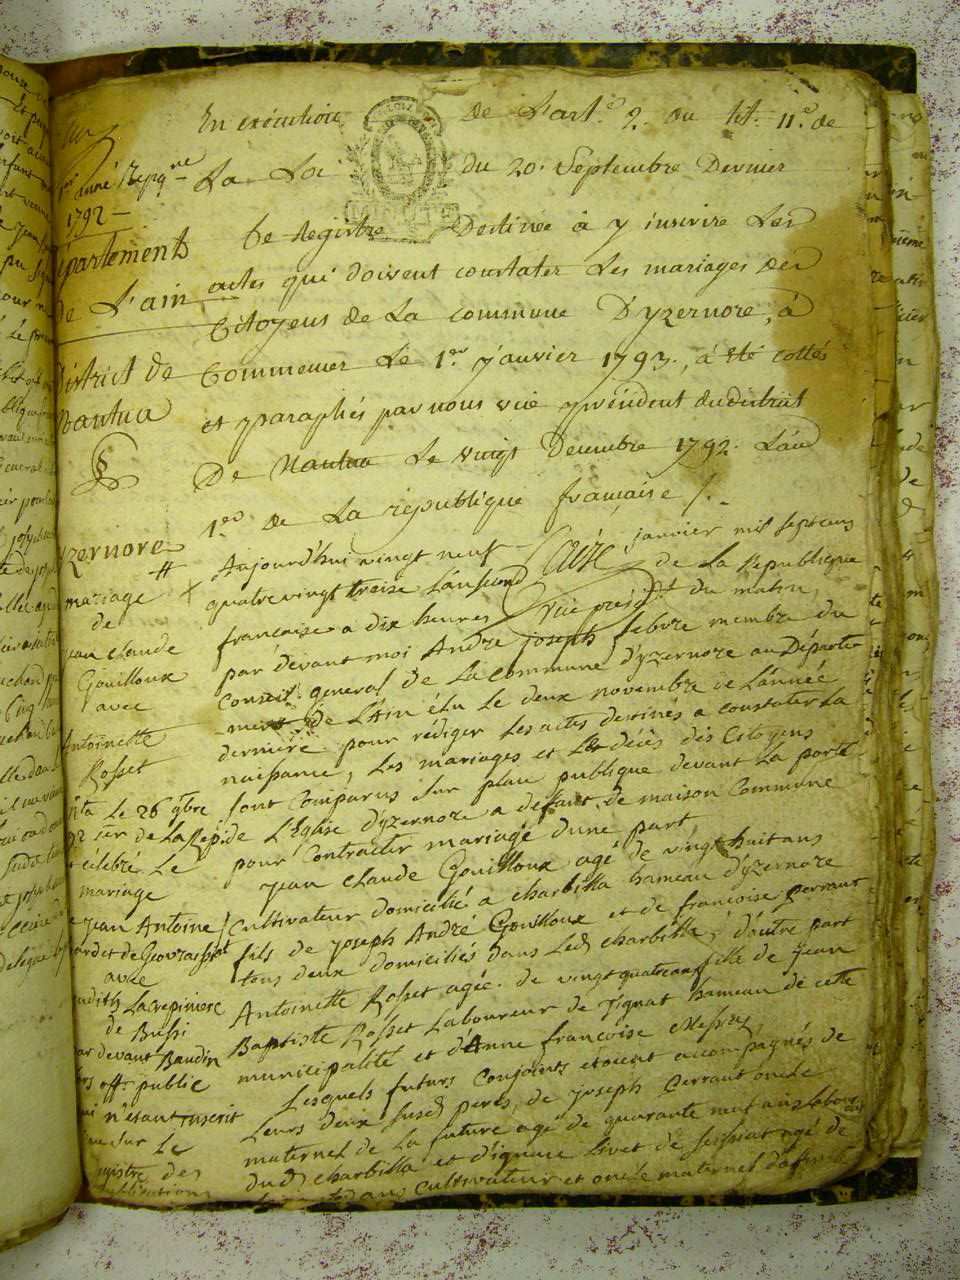 1er année Repqne
1792
Département
de L'ain
District de
Nantua
En exécution de L'art.e 2. du tit. 11.e de
La Loi du 20. Septembre Dernier
Ce Registre Destinée à y inscrire Les
actes qui doivent constater Les mariages des
Citoyens de La commune D'yzernore, à
Commencer Le 1.er Janvier 1793., à été cottés
et paraphés par nous vice président du district
De Nantua Le vingt Decembre 1792. L'an
1.er de La république française /.
yzernore
mariage
de
jean claude
Gouilloux
avec
Antoinette
Rosset
Aujourd'hui vingt neuf janvier mil sept cens
quatre vingt treise L'an second de La Republique
françaises a dix heures du matin,
vice présidt
par devant moi André joseph febvre membre du
Conseil general de La commune d'yzernore au Départe
ment de L'Ain élu Le deux novembre de L'année
derniere pour rédiger Les actes destinés a constater La
naissance, Les mariages et Les décès des Citoyens
sont Comparus sur plau publique devant La porte
de L'Eglise d'yzernore a défaut de maison Commune
pour Contracter mariage d'une part
jean claude Gouilloux agé de vingt huit ans
Cultivateur domicilié a charbilla hameau d'yzernore
fils de joseph André Gouilloux et de françoise perraut
tous deux domiciliés dans Led charbilla, d'autre part
Antoinette Rosset agée de vingt quatre ans fille de jean
Baptiste Rosset Laboureur de Tignat hameau de cette
municipalité et d'Anne françoise
Lesquels futurs Conjoints etoient accompagnés de
Leurs deux susd peres, de joseph perraut oncle
maternel de La future agé de quarante neuf ans Labour
dud charbilla et d'ignace Livet de sessiat agé de
ans cultivateur et oncle maternel
Le 26 9bre
92 1er de La Rep
célébré Le
mariage
de jean Antoine
de Geovreissiat
avec
Judith Lacrepiniere
de Bussi
par devant Baudin
off. public
n'étant inscrit
sur Le
registre des
publications